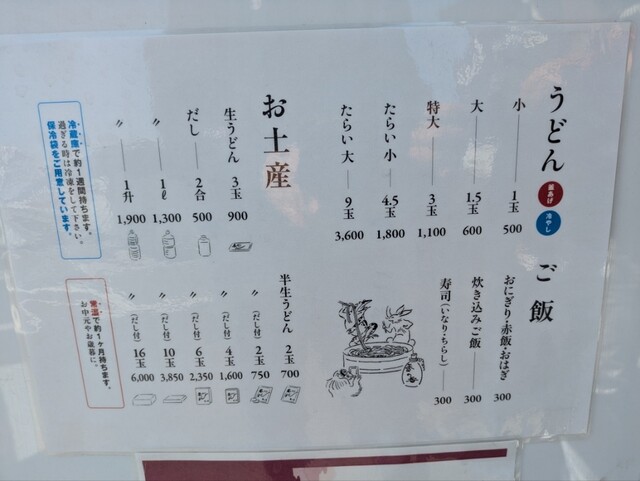 うどん 釜あげ 冷やし
小 1玉 500
大 1.5玉 600
特大 3玉 1,100
たらい小 4.5玉 1,800
たらい大 9玉 3,600
ご飯
おにぎり・赤飯・おはぎ 300
炊き込みご飯 300
寿司(いなり・ちらし) 300
お土産
生うどん 3玉 900
だし 2合 500
〃 1ℓ 1,300
〃 1升 1,900
冷蔵庫で約1週間持ちます。
過ぎる時は冷凍をして下さい。
保冷袋をご用意しています。
半生うどん 2玉 700
〃 (だし付) 2玉 750
〃 (だし付) 4玉 1,600
〃 (だし付) 6玉 2,350
〃 (だし付) 10玉 3,850
〃 (だし付) 16玉 6,000
常温で約1ヶ月持ちます。
お中元やお歳暮に。